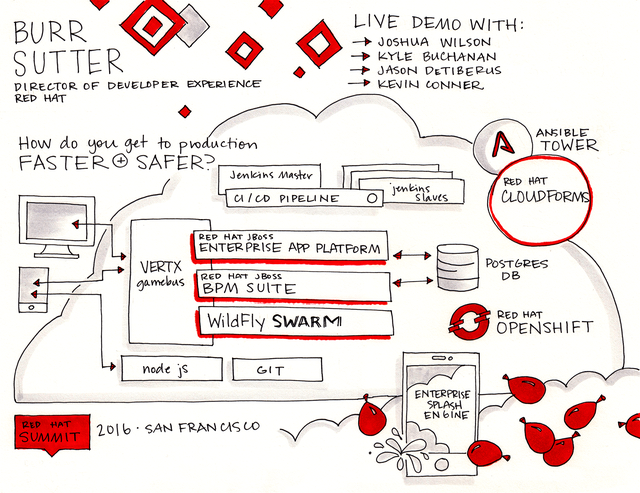 BURR
SUTTER
DIRECTOR OF DEVELOPER EXPERIENCE
RED HAT
LIVE DEMO WITH:
JOSHUA WILSON
KYLE BUCHANAN
JASON DETIBERUS
KEVIN CONNER
How do you get to production
FASTER + SAFER?
ANSIBLE
TOWER
RED HAT
CLOUDFORMS
Jenkins Master
CI/CD PIPELINE
jenkins
slaves
VERTX
gamebus
RED HAT JBOSS
ENTERPRISE APP PLATFORM
RED HAT JBOSS
BPM SUITE
WildFly SWARM
POSTGRES
DB
RED HAT
OPENSHIFT
node js
GIT
ENTERPRISE
SPLASH
ENGINE
RED HAT
SUMMIT
2016 · SAN FRANCISCO